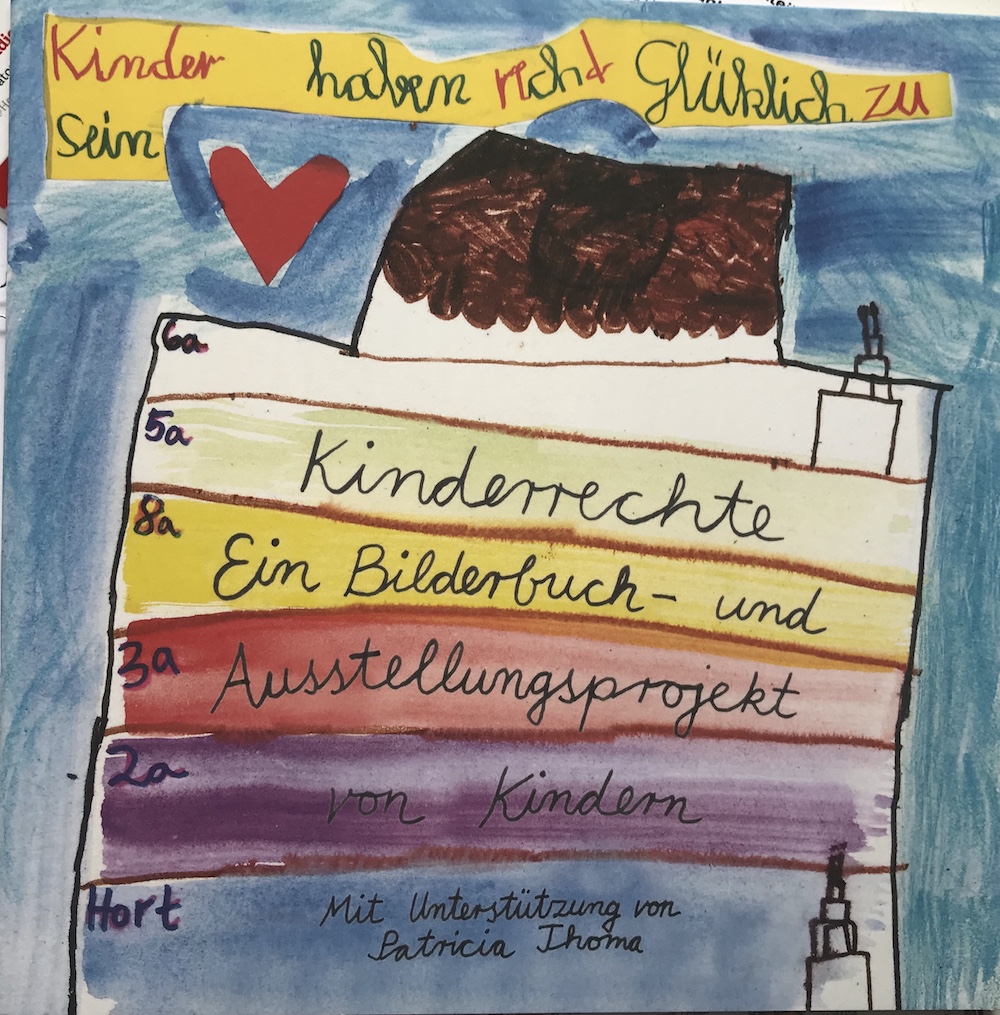 Kinder haben recht Glüklich zu
Sein
6a
5a
Kinderrechte
8a
Ein Bilderbuch- und
3a
Ausstellungsprojekt
2a
von Kindern
Hort
Mit Unterstützung von
Patricia Thoma